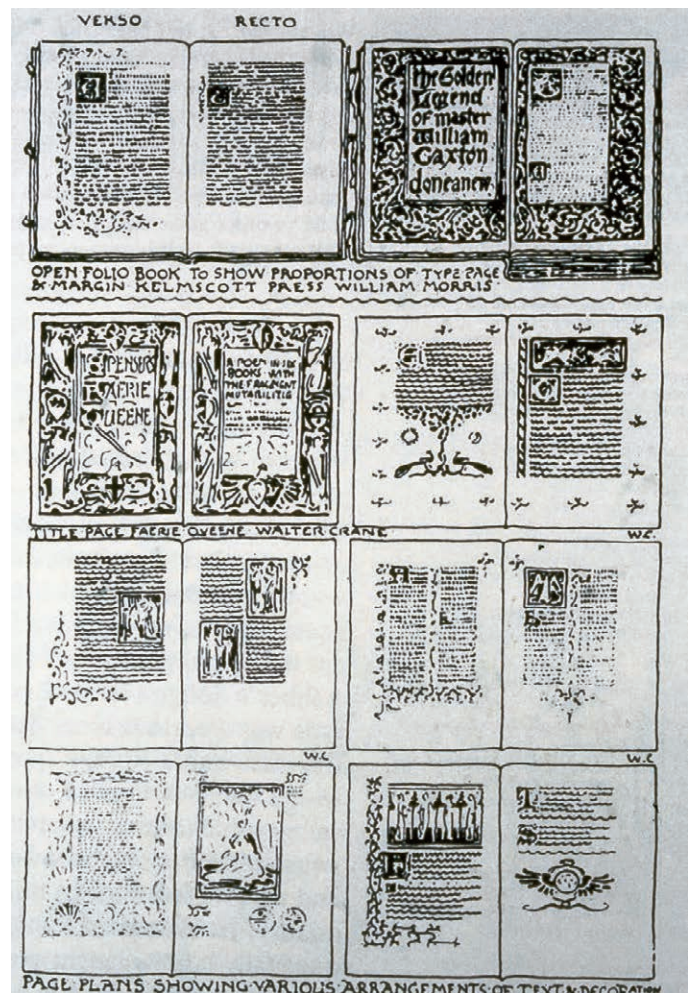 VERSO
RECTO
the Golden
Legend
of master
William
Caxton
done anew.
OPEN FOLIO BOOK TO SHOW PROPORTIONS OF TYPE PAGE
& MARGIN KELMSCOTT PRESS WILLIAM MORRIS.
SPENSERS
FAERIE
QUEENE
A POEM IN SIX
BOOKS WITH
THE FRAGMENT
MUTABILITIE
TITLE PAGE FAERIE QUEENE. WALTER CRANE.
W.C.
W.C
W.C
PAGE PLANS SHOWING VARIOUS ARRANGEMENTS OF TEXT & DECORATION